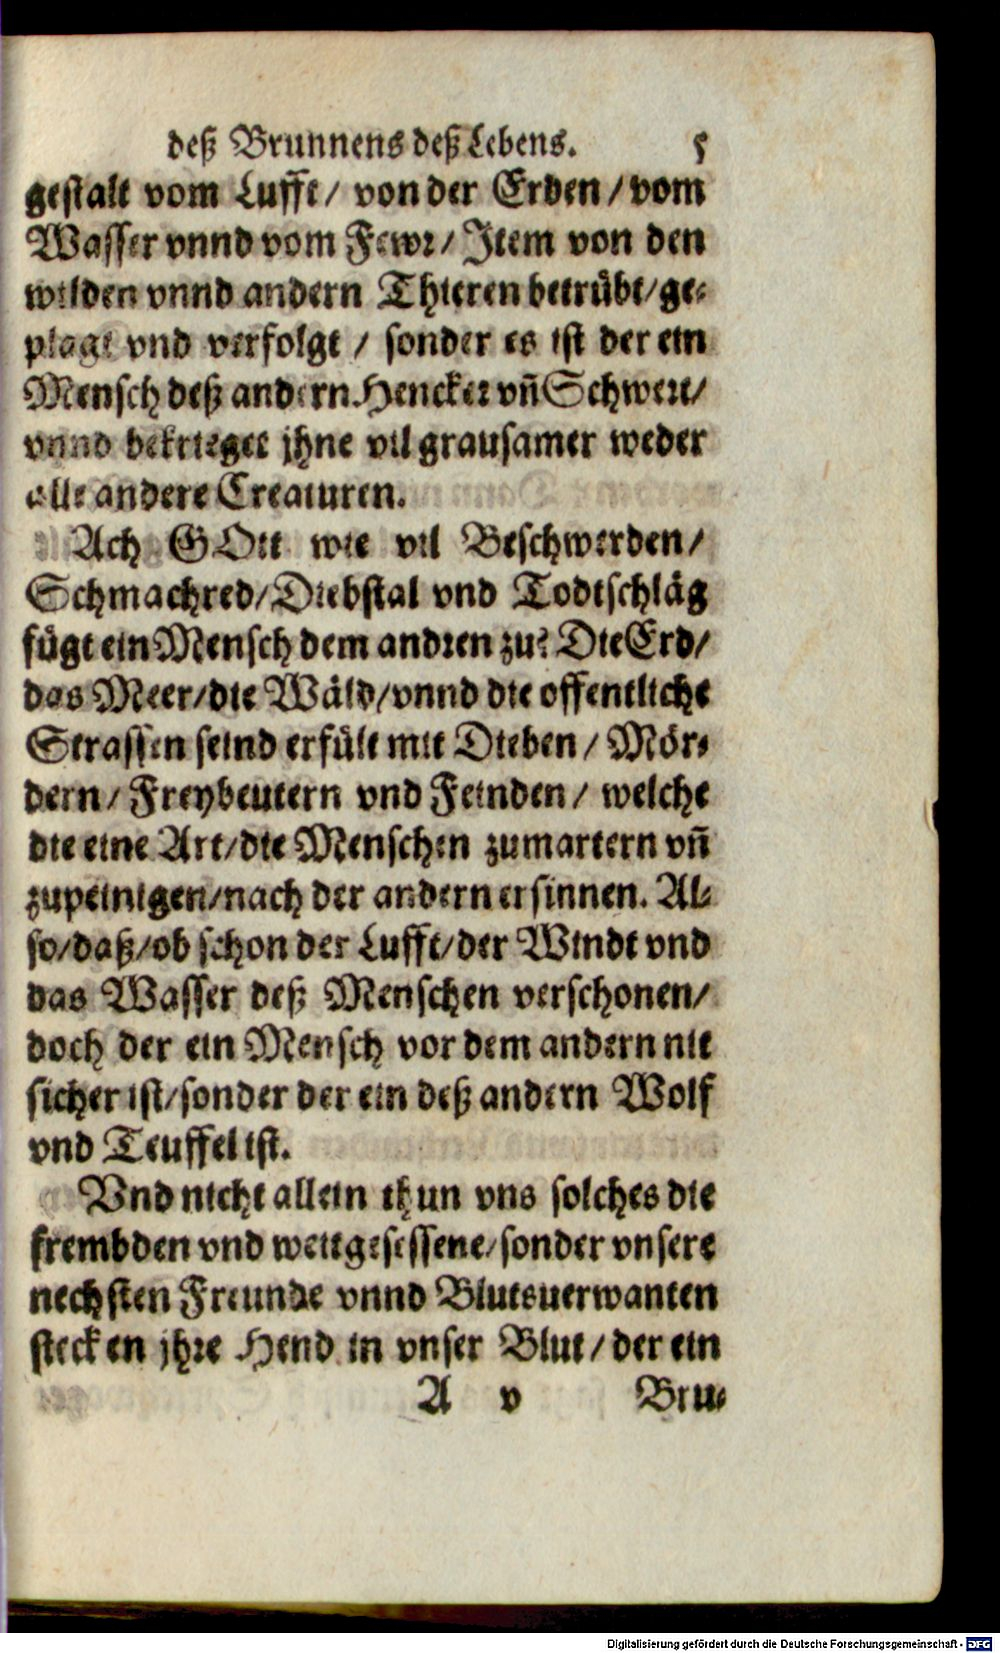 deß Brunnens deß Lebens. 5
gestalt vom Lufft/ von der Erden/ vom
Wasser vnnd vom Fewr/ Item von den
wilden vnnd andern Thieren betrübt/ ge-
plagt vnd verfolgt/ sonder es ist der ein
Mensch deß andern Hencker vñ Schwert/
vnnd bekrieget jhne vil grausamer weder
alle andere Creaturen.
Ach GOtt wie vil Beschwerden/
Schmachred/ Diebstal vnd Todtschläg
fügt ein Mensch dem andren zu? Die Erd/
das Meer/ die Wäld/ vnnd die offentliche
Strassen seind erfült mit Dieben/ Mör-
dern/ Freybeutern vnd Feinden/ welche
die eine Art/ die Menschen zumartern vñ
zupeinigen/ nach der andern ersinnen. Al-
so/ daß/ ob schon der Lufft/ der Windt vnd
das Wasser deß Menschen verschonen/
doch der ein Mensch vor dem andern nit
sicher ist/ sonder der ein deß andern Wolf
vnd Teuffel ist.
Vnd nicht allein thun vns solches die
frembden vnd weitgesessene/ sonder vnsere
nechsten Freunde vnnd Blutsuerwanten
stecken jhre Hend in vnser Blut/ der ein
A v Bru-
Digitalisierung gefördert durch die Deutsche Forschungsgemeinschaft - DFG